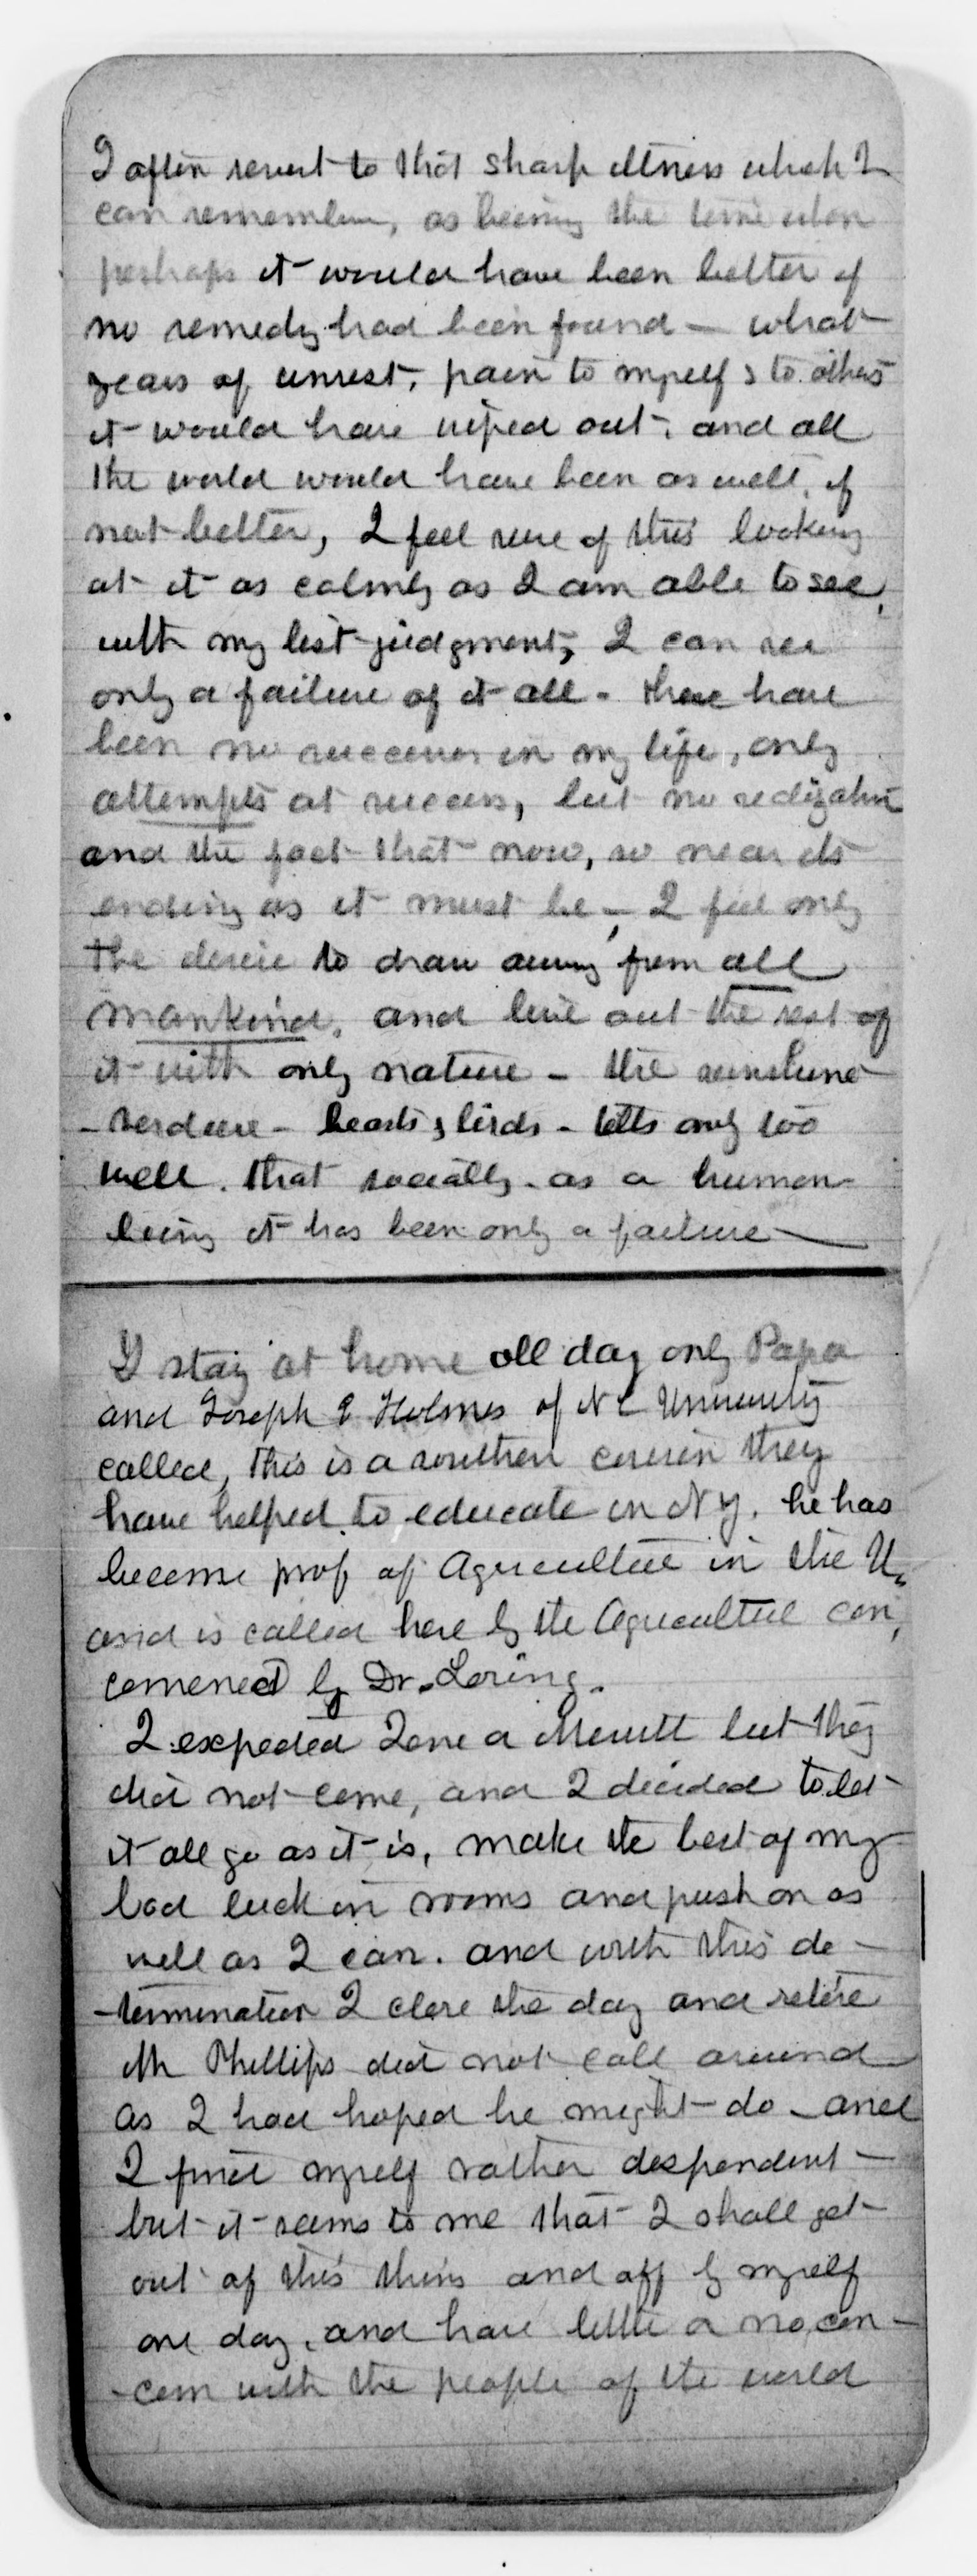 I often revert to that sharp illness which I
can remember, as being the time when
perhaps it would have been better if
no remedy had been found - what
years of unrest, pain to myself & to others
it would have wiped out, and all
the world would have been as well, if
not better, I feel sure of this looking
at it as calmly as I am able to see,
with my best judgment, I can see
only a failure of it all - there have
been no successes in my life, only
attempts at success, but no realization
and the fact that now, so near its
ending as it must be, - I feel only
the desire to draw away from all
mankind, and live out the rest of
it with only nature - the sunshine
- verdure - beasts & birds - tells only too
well. that socially - as a human
being it has been only a failure -
I stay at home all day only Papa
and Joseph E Holmes of N C University
called, this is a southern cousin they
have helped to educate in N Y. he has
become prof of Agriculture in the U.
and is called here by the Agricultul con,
convened by Dr. Loring.
I expected Lene a Merritt but they
did not come, and I decided to let
it all go as it is, make the best of my
bad luck in rooms and push on as
well as I can. and with this de -
- termination I close the day and retire
Mr Phillips did not call around
as I had hoped he might do - and
I find myself rather despondent -
but it seems to me that I shall get
out of this thing and off by myself
one day, and have little or no con -
- cern with the people of the world